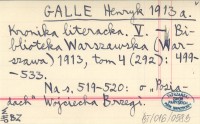 GALLE Henryk 1913 a.
Kronika literacka. V. — Bi-
blioteka Warszawska (War-
szawa) 1913, tom 4 (292): 499-
-533.
Na s. 519-520: o „Posia-
dach" Wojciecha Brzegi.
BZ